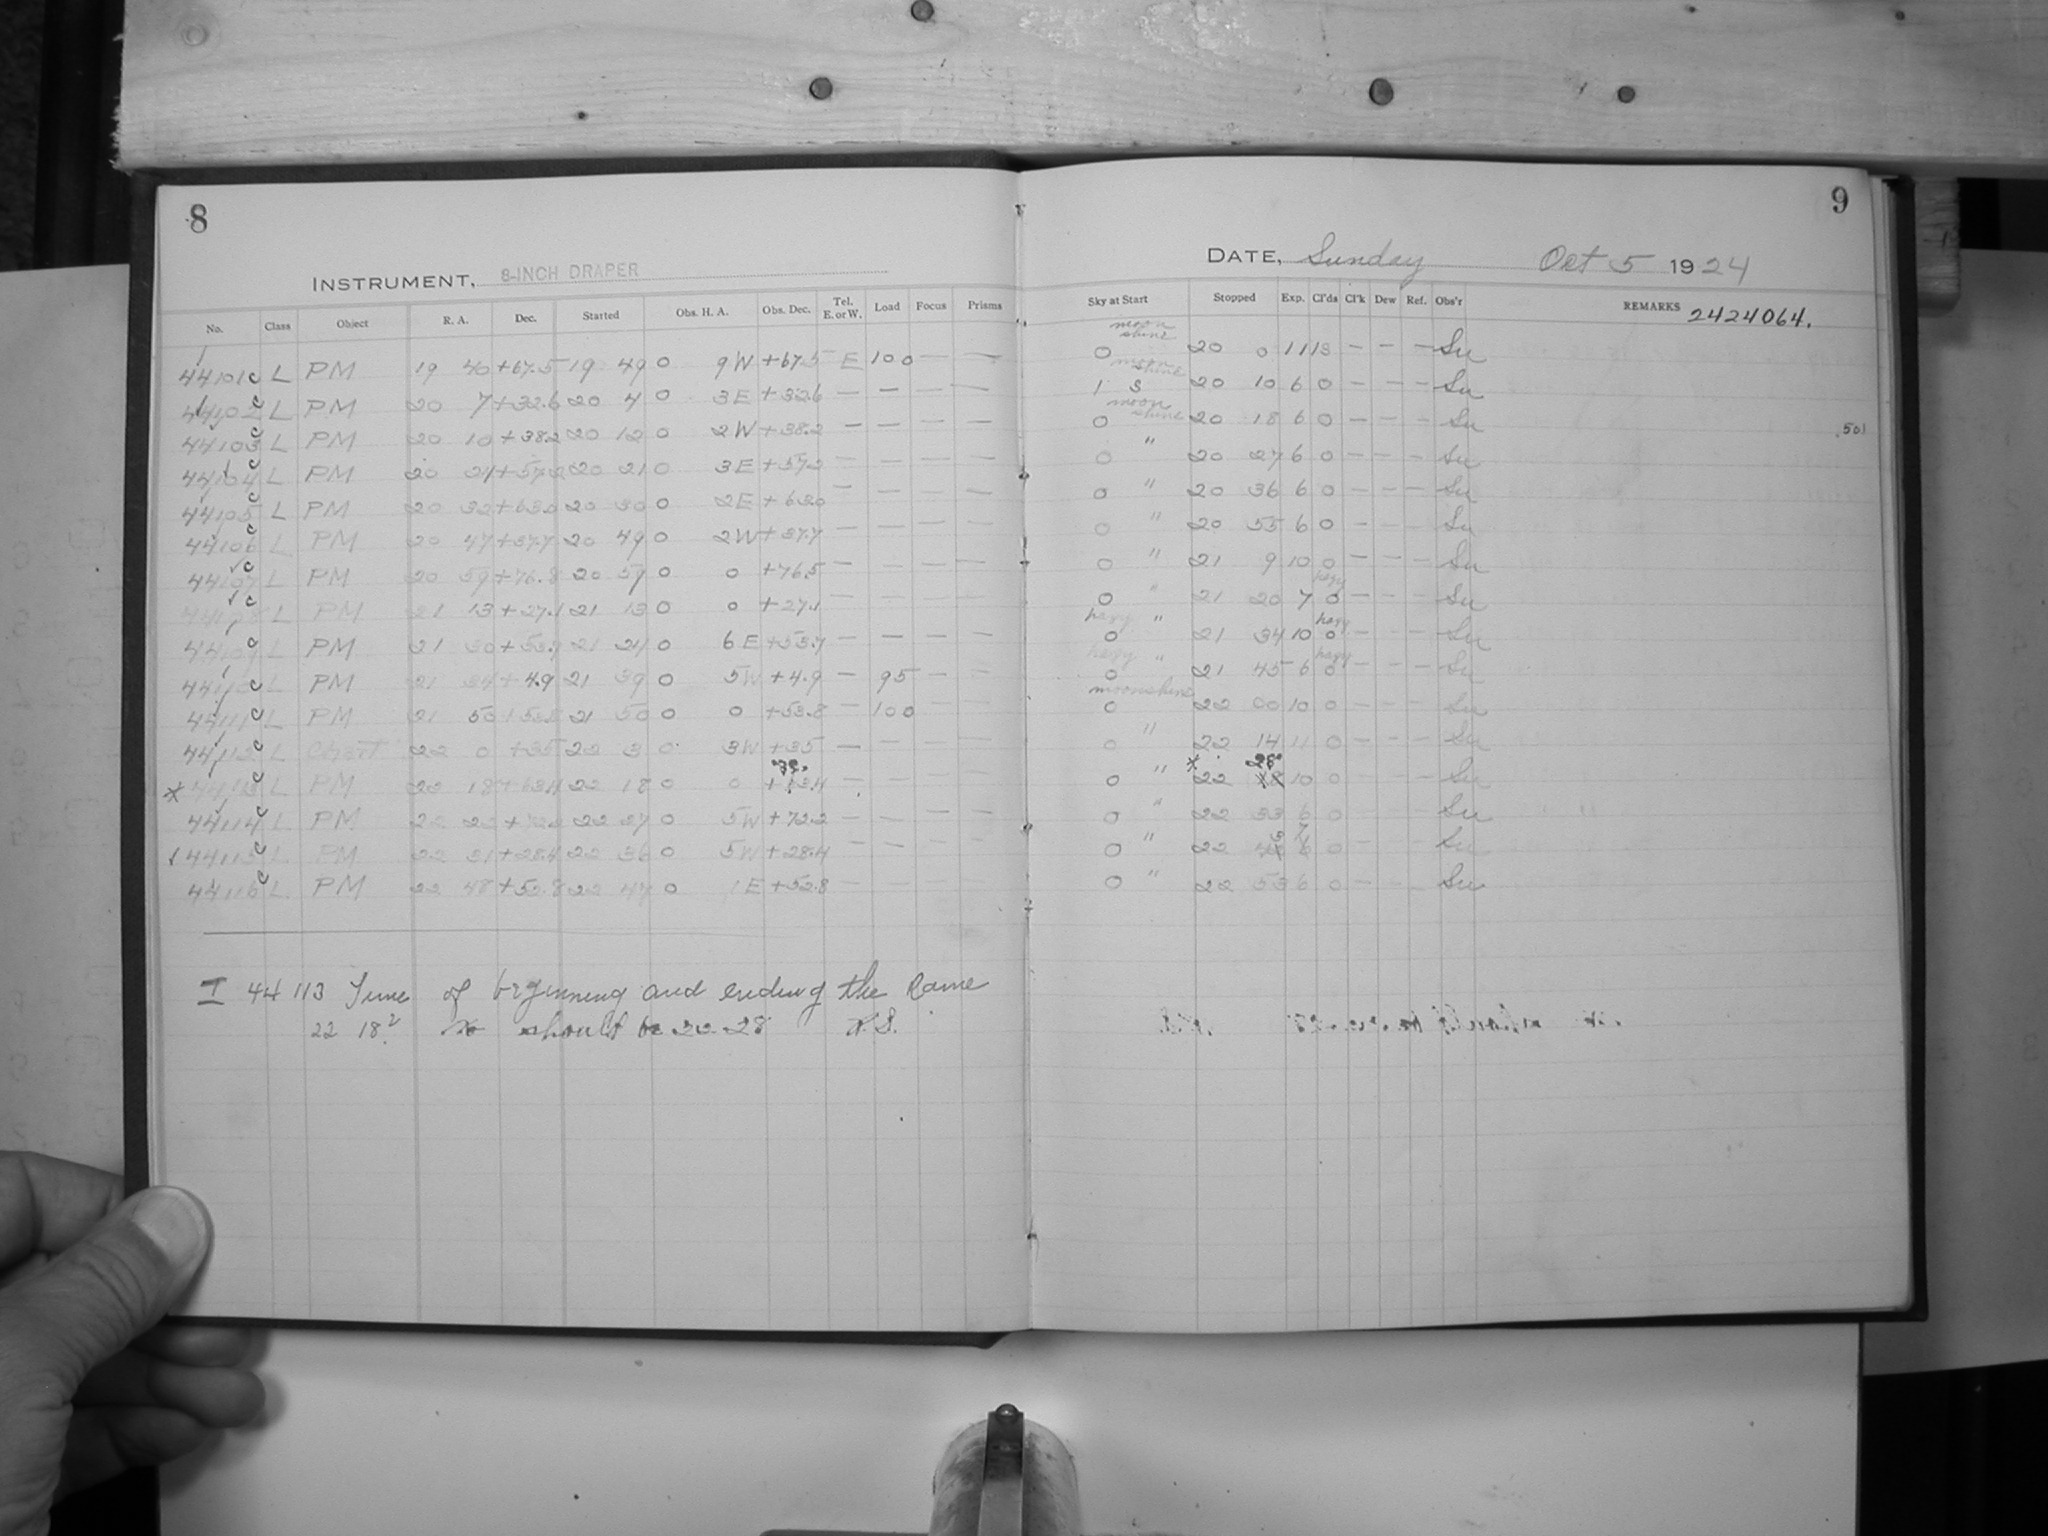 8
INSTRUMENT, 8-INCH DRAPER
No. Class Object R. A. Dec. Started Obs. H. A. Obs. Dec. Tel. E. or W. Load Focus Prisms
44101 c L PM 19 40 +67.5 19 49 0 9 W +67.5 E 100 — —
44102 c L PM 20 7 +32.6 20 4 0 3 E +32.6 — — — —
44103 c L PM 20 10 +38.2 20 12 0 2 W +38.2 — — — —
44104 c L PM 20 24 +57.2 20 21 0 3 E +57.2 — — — —
44105 c L PM 20 32 +63.0 20 30 0 2 E +63.0 — — — —
44106 c L PM 20 47 +37.7 20 49 0 2 W +37.7 — — — —
44107 c L PM 20 59 +76.8 20 59 0 0 +76.5 — — — —
44108 c L PM 21 13 +27.1 21 13 0 0 +27.1 — — — —
44109 c L PM 21 30 +53.7 21 24 0 6 E +53.7 — — — —
44110 c L PM 21 34 +4.9 21 39 0 5 W +4.9 — 95 — —
44111 c L PM 21 50 21 50 0 0 +53.8 — 100 — —
44112 c L Chart 22 0 +35 22 3 0 3 W +35 — — — —
* 44113 c L PM 22 18 22 18 0 0 — — — —
44114 c L PM 22 22 22 27 0 5 W +72.2 — — — —
44115 c L PM 22 31 +28.4 22 36 0 5 W +28.4 — — — —
44116 c L. PM 22 48 +52.8 22 47 0 1 E +52.8 — — — —
I 44113 Time of beginning and ending the same
22 18? should be 22 28
9
DATE, Sunday Oct 5 1924
Sky at Start Stopped Exp. Cl'ds Cl'k Dew Ref. Obs'r REMARKS 2424064.
moon shine
0 20 0 11 — — — Su
moon shine
1 S 20 10 6 0 — — — Su
moon shine
0 20 18 6 0 — — — Su .501
0 " 20 27 6 0 — — — Su
0 " 20 36 6 0 — — — Su
0 " 20 55 6 0 — — — Su
0 " 21 9 10 0 — — — Su
hazy
0 " 21 20 7 0 — — — Su
hazy " hazy
0 21 34 10 0 — — — Su
hazy " hazy
0 21 45 6 0 — — — Su
moonshine
0 22 00 10 0 — — — Su
0 " 22 14 11 0 — — — Su
* 28
0 " 22 18 10 0 — — — Su
0 " 22 33 6 0 — — — Su
0 " 22 0 — — — Su
0 " 22 53 6 0 — — — Su